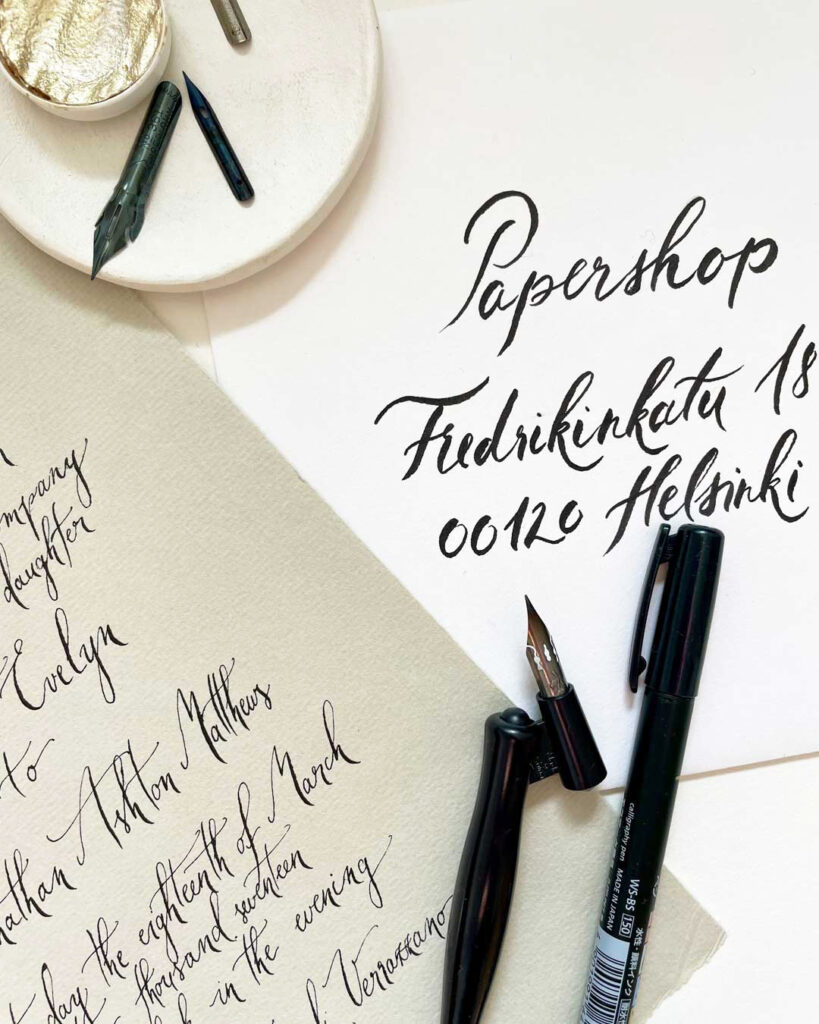 Papershop
Fredrikinkatu 18
00120 Helsinki
mpany
daughter
Evelyn
to
athan Ashton Matthews
day the eighteenth of March
thousand seventeen
in the evening
Verrazzano
calligraphy pen MADE IN JAPAN
WS-BS 150
水性・顔料インク